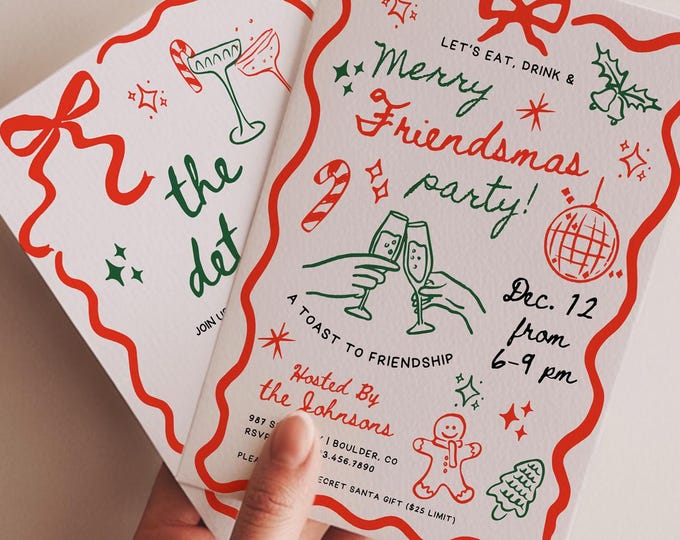 the
det
JOIN US
LET'S EAT, DRINK &
Merry
Friendsmas
party!
Dec. 12
from
6-9 pm
A TOAST TO FRIENDSHIP
Hosted By
the Johnsons
987 | BOULDER, CO
RSVP 3.456.7890
SECRET SANTA GIFT ($25 LIMIT)